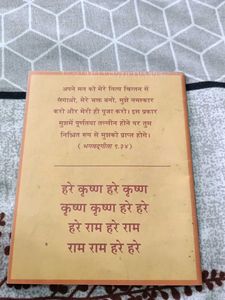 अपने मन को मेरे नित्य चिन्तन में
लगाओ, मेरे भक्त बनो, मुझे नमस्कार
करो और मेरी ही पूजा करो। इस प्रकार
मुझमें पूर्णतया तल्लीन होने पर तुम
निश्चित रूप से मुझको प्राप्त होगे।
( भगवद्गीता ९.३४)
हरे कृष्ण हरे कृष्ण
कृष्ण कृष्ण हरे हरे
हरे राम हरे राम
राम राम हरे हरे